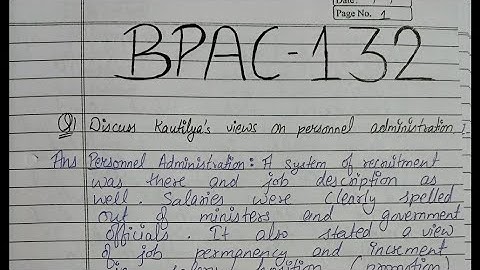 Date:
Page No. 1
BPAC-132
Q) Discuss Kautilya's views on personnel administration?
Ans Personnel Administration: A system of recruitment
was there and job description as
well. Salaries were clearly spelled
out of ministers and government
officials. It also stated a view
of job permanency and increment
in salary position (promotion)